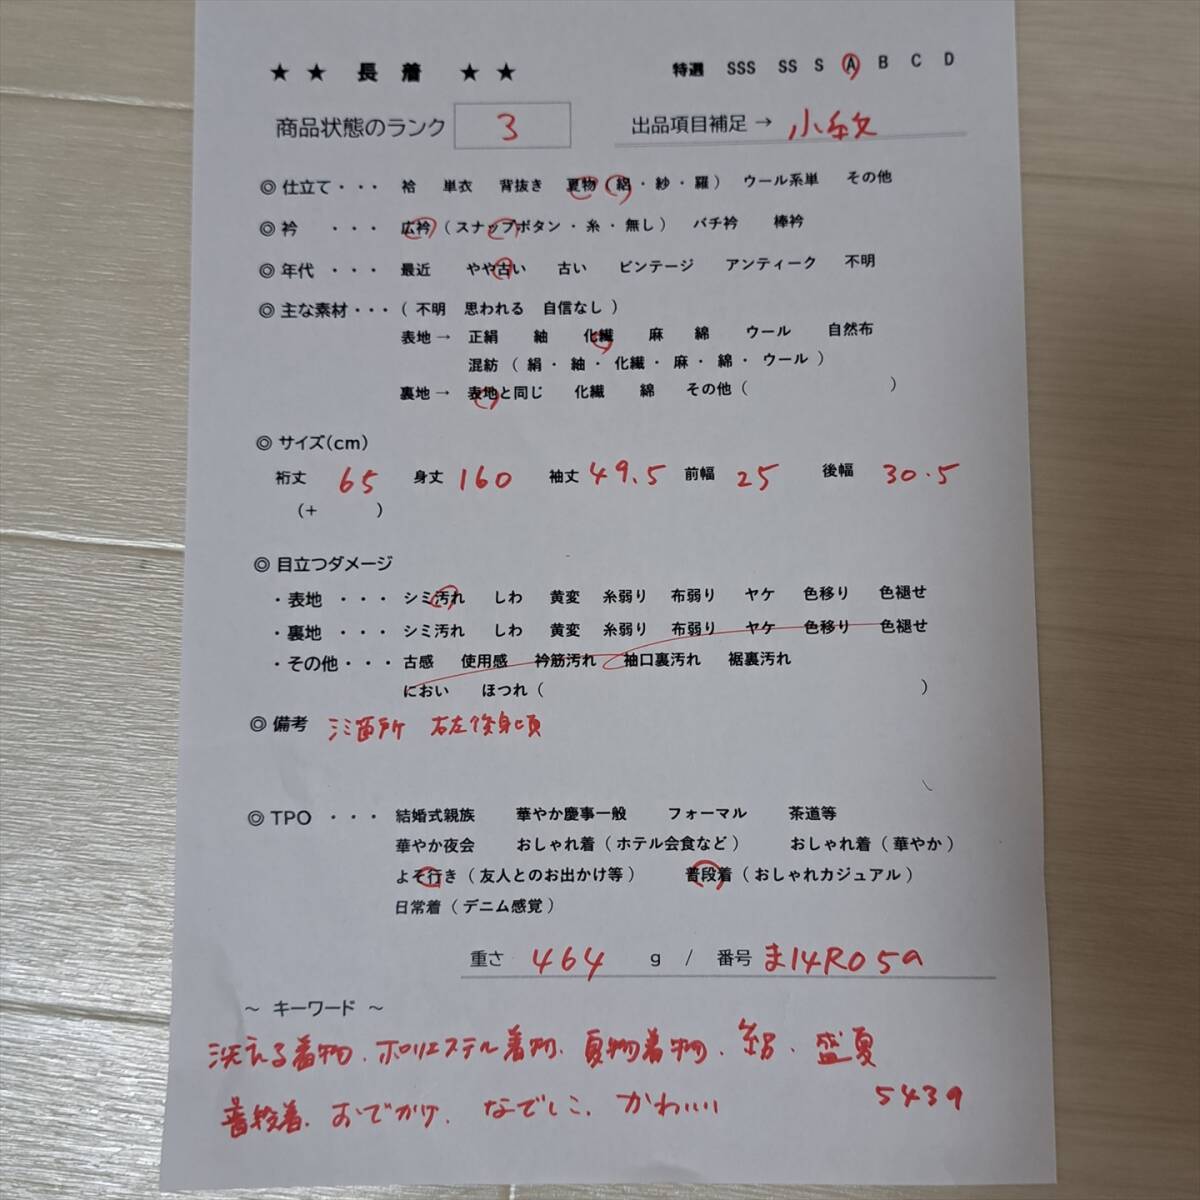 ★ ★ 長 着 ★ ★ 特選 SSS SS S A B C D
商品状態のランク 3 出品項目補足 → 小紋
◎ 仕立て ・・・ 袷 単衣 背抜き 夏物 ( 絽 ・ 紗 ・ 羅 ) ウール系単 その他
◎ 衿 ・・・ 広衿 ( スナップボタン ・ 糸 ・ 無し ) バチ衿 棒衿
◎ 年代 ・・・ 最近 やや古い 古い ビンテージ アンティーク 不明
◎ 主な素材 ・・・ ( 不明 思われる 自信なし )
表地 → 正絹 紬 化繊 麻 綿 ウール 自然布
混紡 ( 絹 ・ 紬 ・ 化繊 ・ 麻 ・ 綿 ・ ウール )
裏地 → 表地と同じ 化繊 綿 その他 ( )
◎ サイズ(cm)
裄丈 65 身丈 160 袖丈 49.5 前幅 25 後幅 30.5
(+ )
◎ 目立つダメージ
・表地 ・・・ シミ汚れ しわ 黄変 糸弱り 布弱り ヤケ 色移り 色褪せ
・裏地 ・・・ シミ汚れ しわ 黄変 糸弱り 布弱り ヤケ 色移り 色褪せ
・その他 ・・・ 古感 使用感 衿筋汚れ 袖口裏汚れ 裾裏汚れ
におい ほつれ ( )
◎ 備考 シミ箇所 右左後身頃
◎ TPO ・・・ 結婚式親族 華やか慶事一般 フォーマル 茶道等
華やか夜会 おしゃれ着 ( ホテル会食など ) おしゃれ着 ( 華やか )
よそ行き ( 友人とのお出かけ等 ) 普段着 ( おしゃれカジュアル )
日常着 ( デニム感覚 )
重さ 464 g / 番号 ま14R05a
～ キーワード ～
洗える着物、ポリエステル着物、夏物着物、絽、盛夏
普段着、おでかけ、なでしこ、かわいい 5439